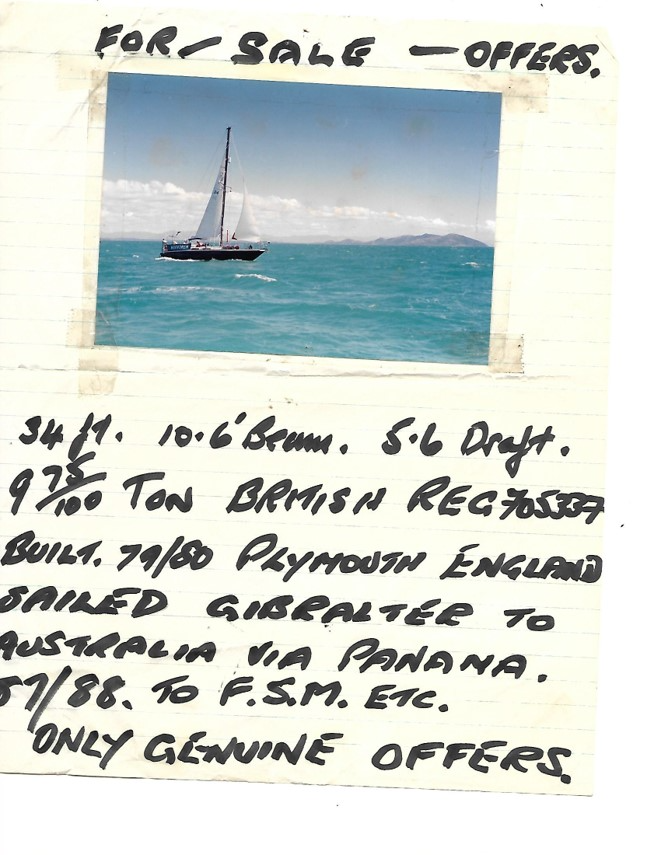 FOR - SALE - OFFERS.
34 ft. 10.6' Beam. 5.6 Draft.
9 75/100 TON BRITISH REG 705337
BUILT. 79/80 PLYMOUTH ENGLAND
SAILED GIBRALTER TO
AUSTRALIA VIA PANAMA.
87/88. TO F.S.M. ETC.
ONLY GENUINE OFFERS.